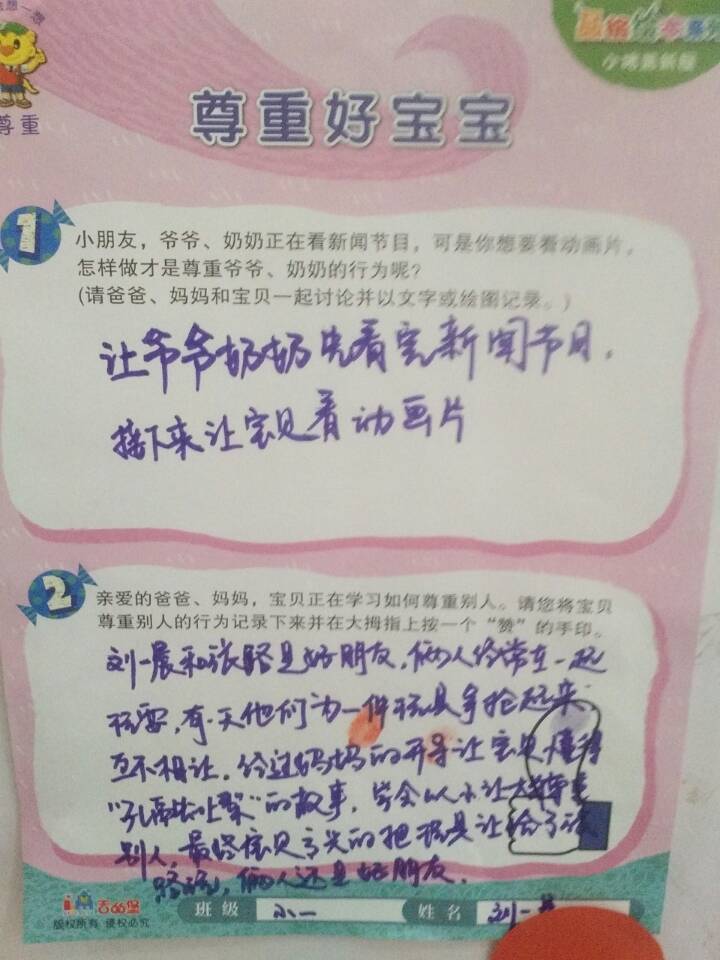 尊重
尊重好宝宝
1
小朋友，爷爷、奶奶正在看新闻节目，可是你想要看动画片。
怎样做才是尊重爷爷、奶奶的行为呢？
(请爸爸、妈妈和宝贝一起讨论并以文字或绘图记录。)
让爷爷奶奶先看完新闻节目，
接下来让宝贝看动画片
2
亲爱的爸爸、妈妈，宝贝正在学习如何尊重别人。请您将宝贝
尊重别人的行为记录下来并在大拇指上按一个“赞”的手印。
刘一晨和张路是好朋友，俩人经常在一起
玩耍，有一天他们为一件玩具争抢起来
互不相让，经过妈妈的开导让宝贝懂得
“孔融让梨”的故事，学会从小让大尊重
别人，最终宝贝高兴的把玩具让给了张
俩人还是好朋友。
版权所有 侵权必究
班级 小一 姓名 刘一